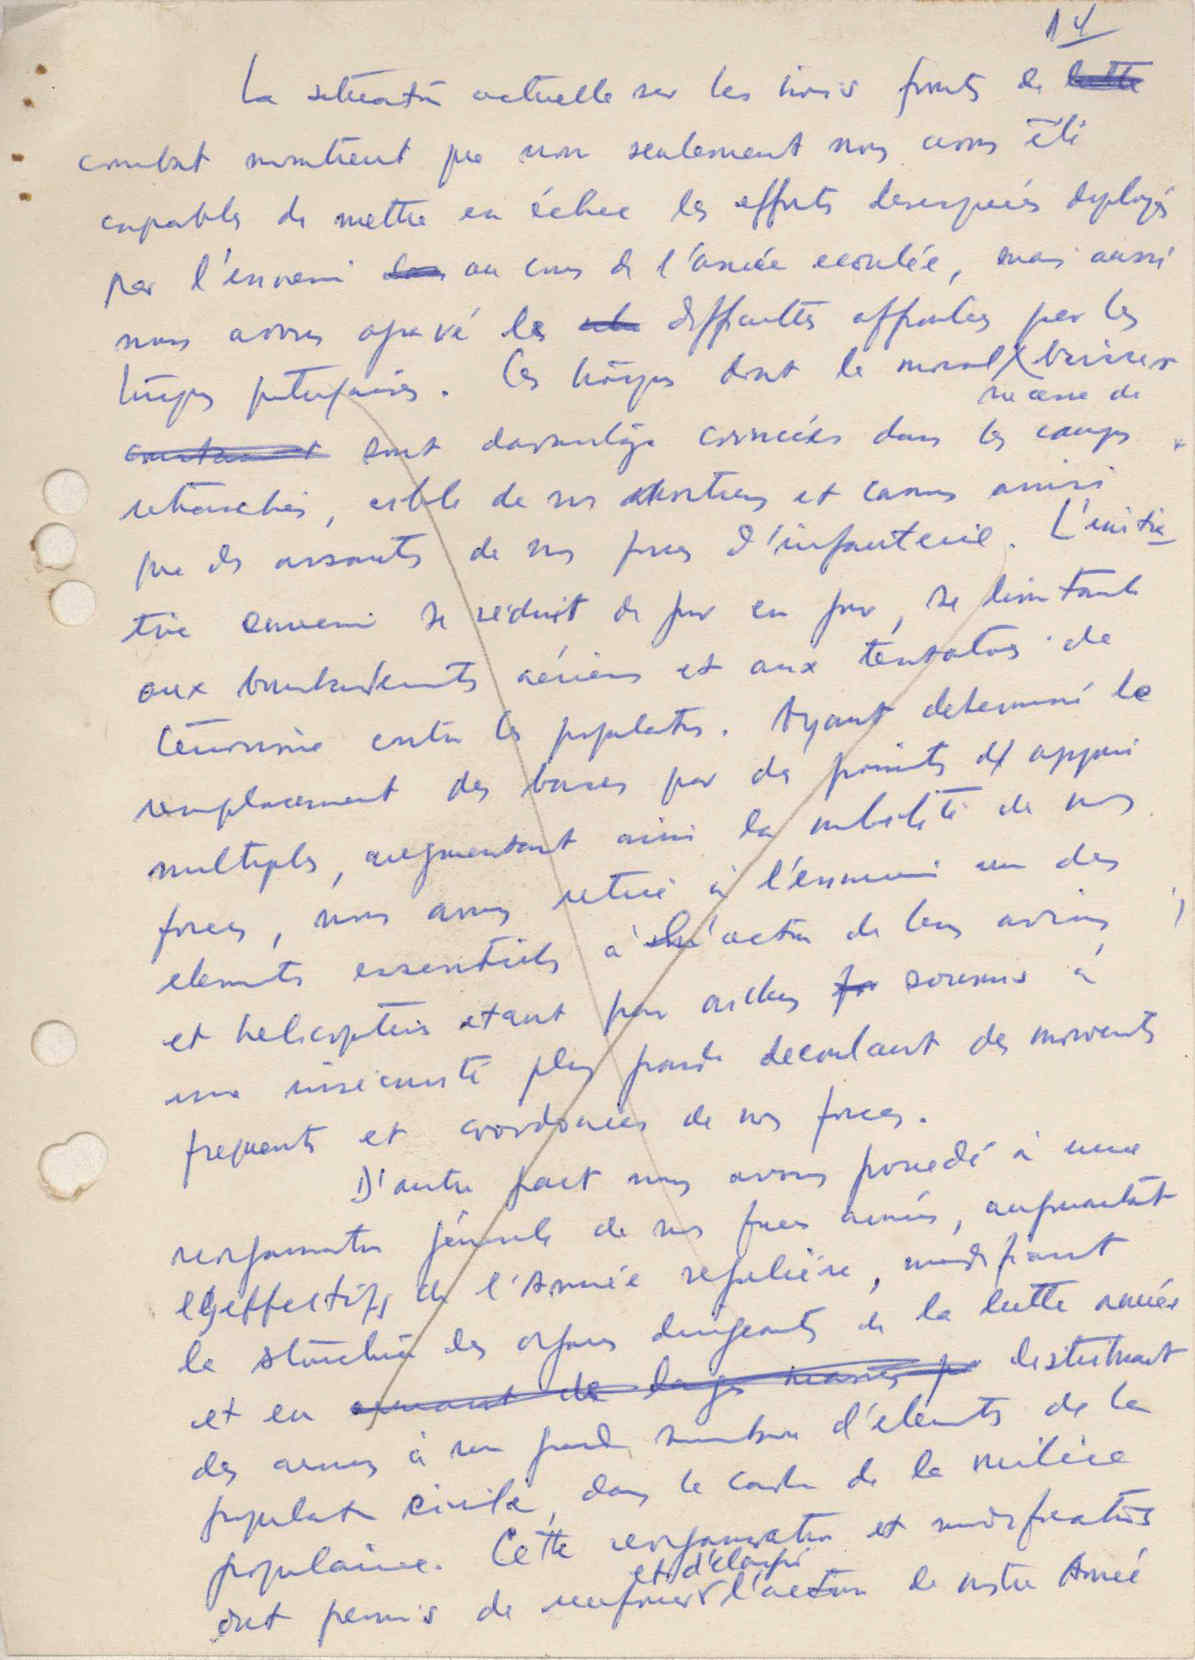 14
La situation actuelle sur les trois fronts de lutte
combat montrent que non seulement nous avons été
capables de mettre en échec les efforts desesperés deployés
par l'ennemi au cours de l'année ecoulée, mais aussi
nous avons agravé les difficultés affrontées par les
troupes portugaises. Ces troupes dont le moral baisse
sans cesse
constamment sont davantage coincées dans les camps
retranchés, cible de nos mortiers et canons ainsi
que des assauts de nos forces d'infanterie. L'initia-
tive ennemie se réduit de jour en jour, se limitant
aux bombardements aériens et aux tentatives de
terrorisme contre les populations. Ayant determiné le
remplacement des bases par des points d'appui
multiples, augmentant ainsi la mobilité de nos
forces, nous avons retiré à l'ennemi un des
elements essentiels à l'action de leurs avions
et helicoptères étant par ailleurs soumis à
une insécurité plus grande decoulant des mouvements
frequents et coordonnées de nos forces.
D'autre part nous avons procedé à une
reorganisation générale de nos forces armées, augmentant
les effectifs de l'Armée regulière, modifiant
la structure des organes dirigeants de la lutte armée
et en armant de larges masses distribuant
des armes à un grand nombre d'elements de la
population civile, dans le cadre de la milice
populaire. Cette reorganisation et modifications
et d'élargir
ont permis de renforcer l'action de notre Armée